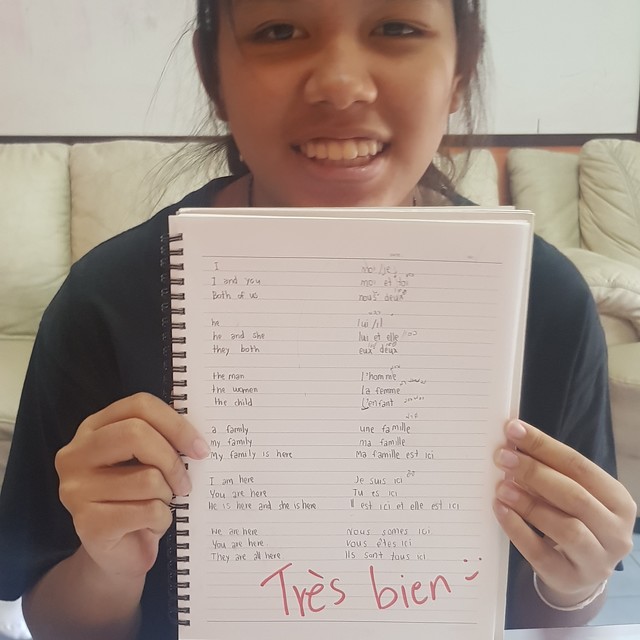 I moi/je
I and you moi et toi
Both of us nous deux
he lui/il
he and she lui et elle
they both eux deux
the man L'homme
the women La femme
the child L'enfant
a family une famille
my family ma famille
My family is here Ma famille est ici
I am here Je suis ici
You are here Tu es ici
He is here and she is here Il est ici et elle est ici
We are here Nous somes ici
You are here vous êtes ici
They are all here Ils sont tous ici
Très bien